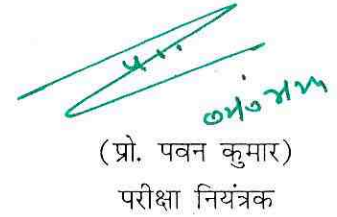 (प्रो. पवन कुमार)
परीक्षा नियंत्रक